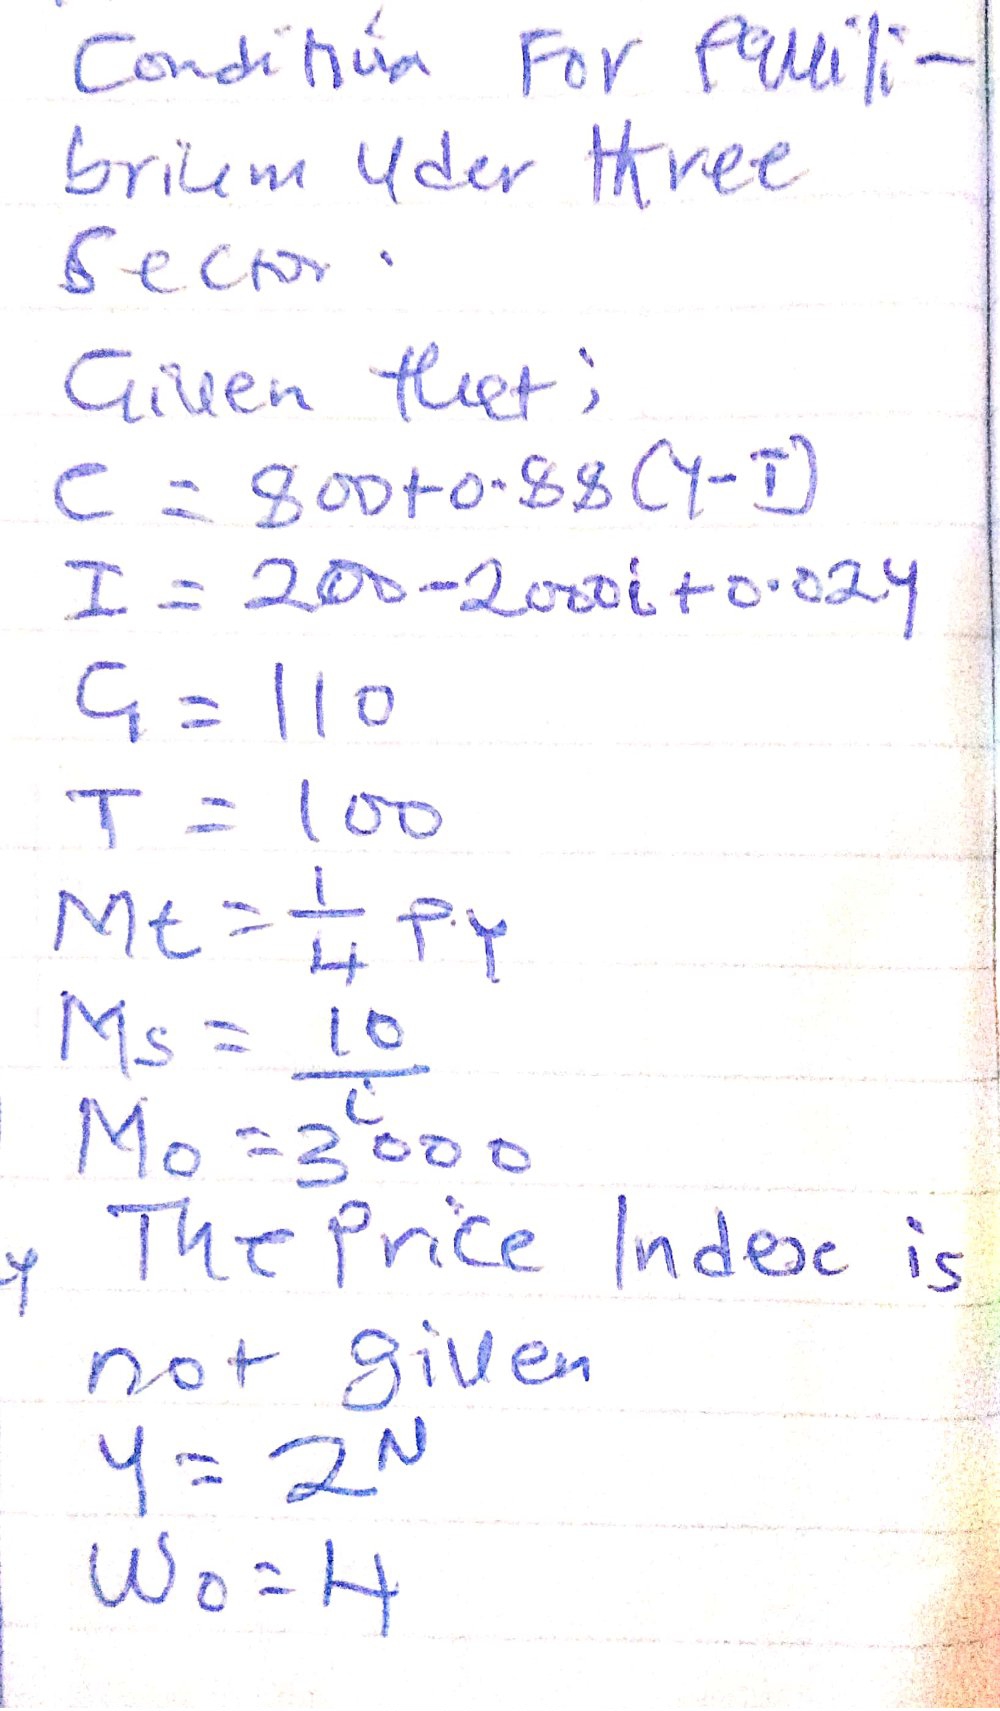 Condition For Equili-
brium Uder three
Sector.
Given that;
C = 800+0.88(Y-T)
I = 200-2000i+0.02Y
G = 110
T = 100
Mt = 1/4 P.Y
Ms = 10/i
Mo = 3000
The Price Index is
y
not given
Y = 2N
Wo = 4